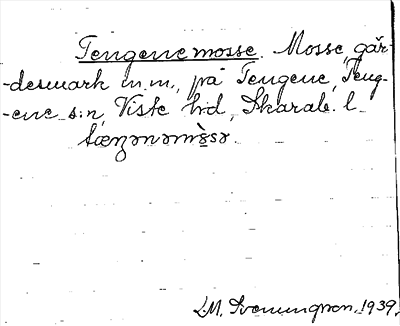 Tengene mosse. Mosse, går-
-desmark m.m., på Tengene, Teng-
-ene s:n, Viste h:d, Skarab. l.
tæŋənəmòsə.
L.M. Svenungsson. 1939.